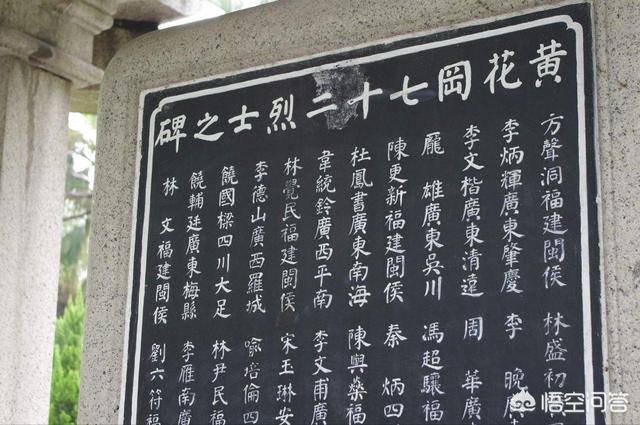 黃花岡七十二烈士之碑
方聲洞福建閩侯 林盛初
李炳輝廣東肇慶 李晚廣
李文楷廣東清遠 周華廣
龐雄廣東吳川 馮超驤福
陳更新福建閩侯 秦炳四
杜鳳書廣東南海 陳與燊福
韋統鈴廣西平南 李文甫廣
林覺民福建閩侯 宋玉琳安
李德山廣西羅城 喻培倫四
饒國樑四川大足 林尹民福
饒輔廷廣東梅縣 李雁南廣
林文福建閩侯 劉六符福
悟空问答